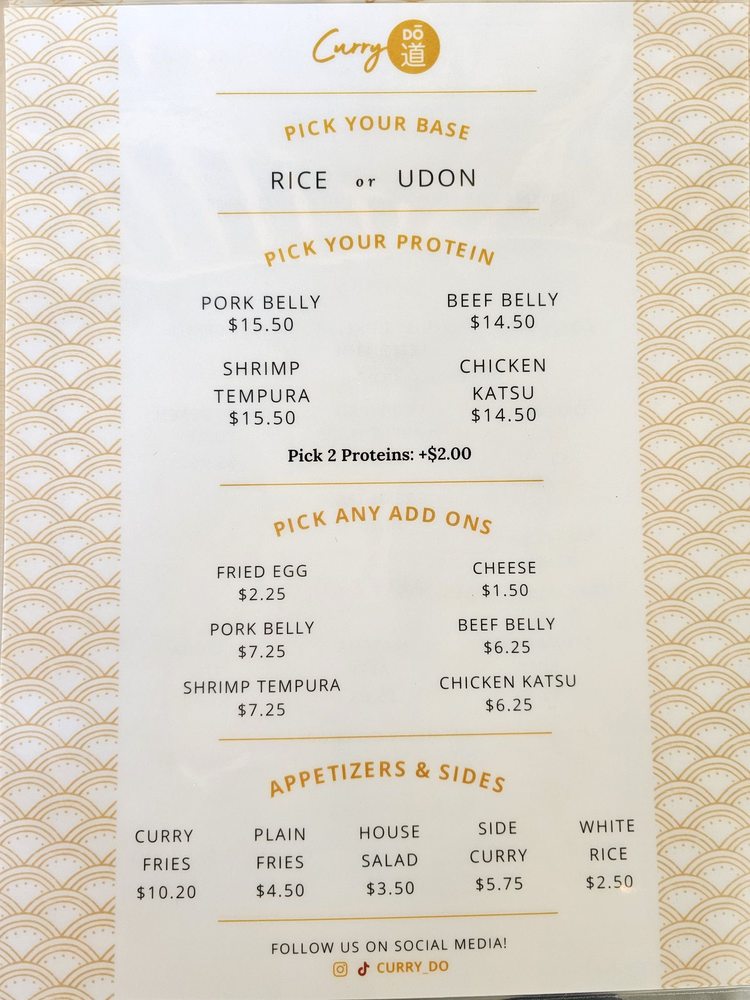 Curry DŌ 道
PICK YOUR BASE
RICE or UDON
PICK YOUR PROTEIN
PORK BELLY
$15.50
BEEF BELLY
$14.50
SHRIMP
TEMPURA
$15.50
CHICKEN
KATSU
$14.50
Pick 2 Proteins: +$2.00
PICK ANY ADD ONS
FRIED EGG
$2.25
CHEESE
$1.50
PORK BELLY
$7.25
BEEF BELLY
$6.25
SHRIMP TEMPURA
$7.25
CHICKEN KATSU
$6.25
APPETIZERS & SIDES
CURRY
FRIES
$10.20
PLAIN
FRIES
$4.50
HOUSE
SALAD
$3.50
SIDE
CURRY
$5.75
WHITE
RICE
$2.50
FOLLOW US ON SOCIAL MEDIA!
CURRY_DO